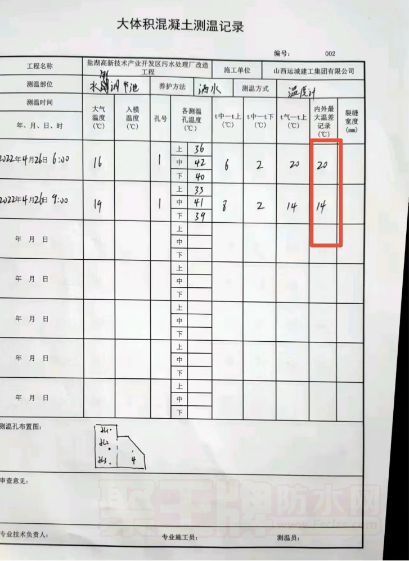 大体积混凝土测温记录
编号： 002
工程名称 盐湖高新技术产业开发区污水处理厂改造工程 施工单位 山西运城建工集团有限公司
测温部位 水解调节池 养护方法 洒水 测温方式 温度计
测温时间 大气温度(℃) 入模温度(℃) 孔号 各测温孔温度(℃) t中-t上(℃) t中-t下(℃) t气-t上(℃) 内外最大温差记录(℃) 裂缝宽度(mm)
年、月、日、时
2022年4月26日 6:00 16 1 上 36 6 2 20 20
中 42
下 40
2022年4月26日 9:00 19 1 上 33 8 2 14 14
中 41
下 39
年 月 日 上
中
下
年 月 日 上
中
下
年 月 日 上
中
下
年 月 日 上
中
下
年 月 日 上
中
下
测温孔布置图：
4
审查意见：
防水网
专业技术负责人： 专业施工员： 测温员：